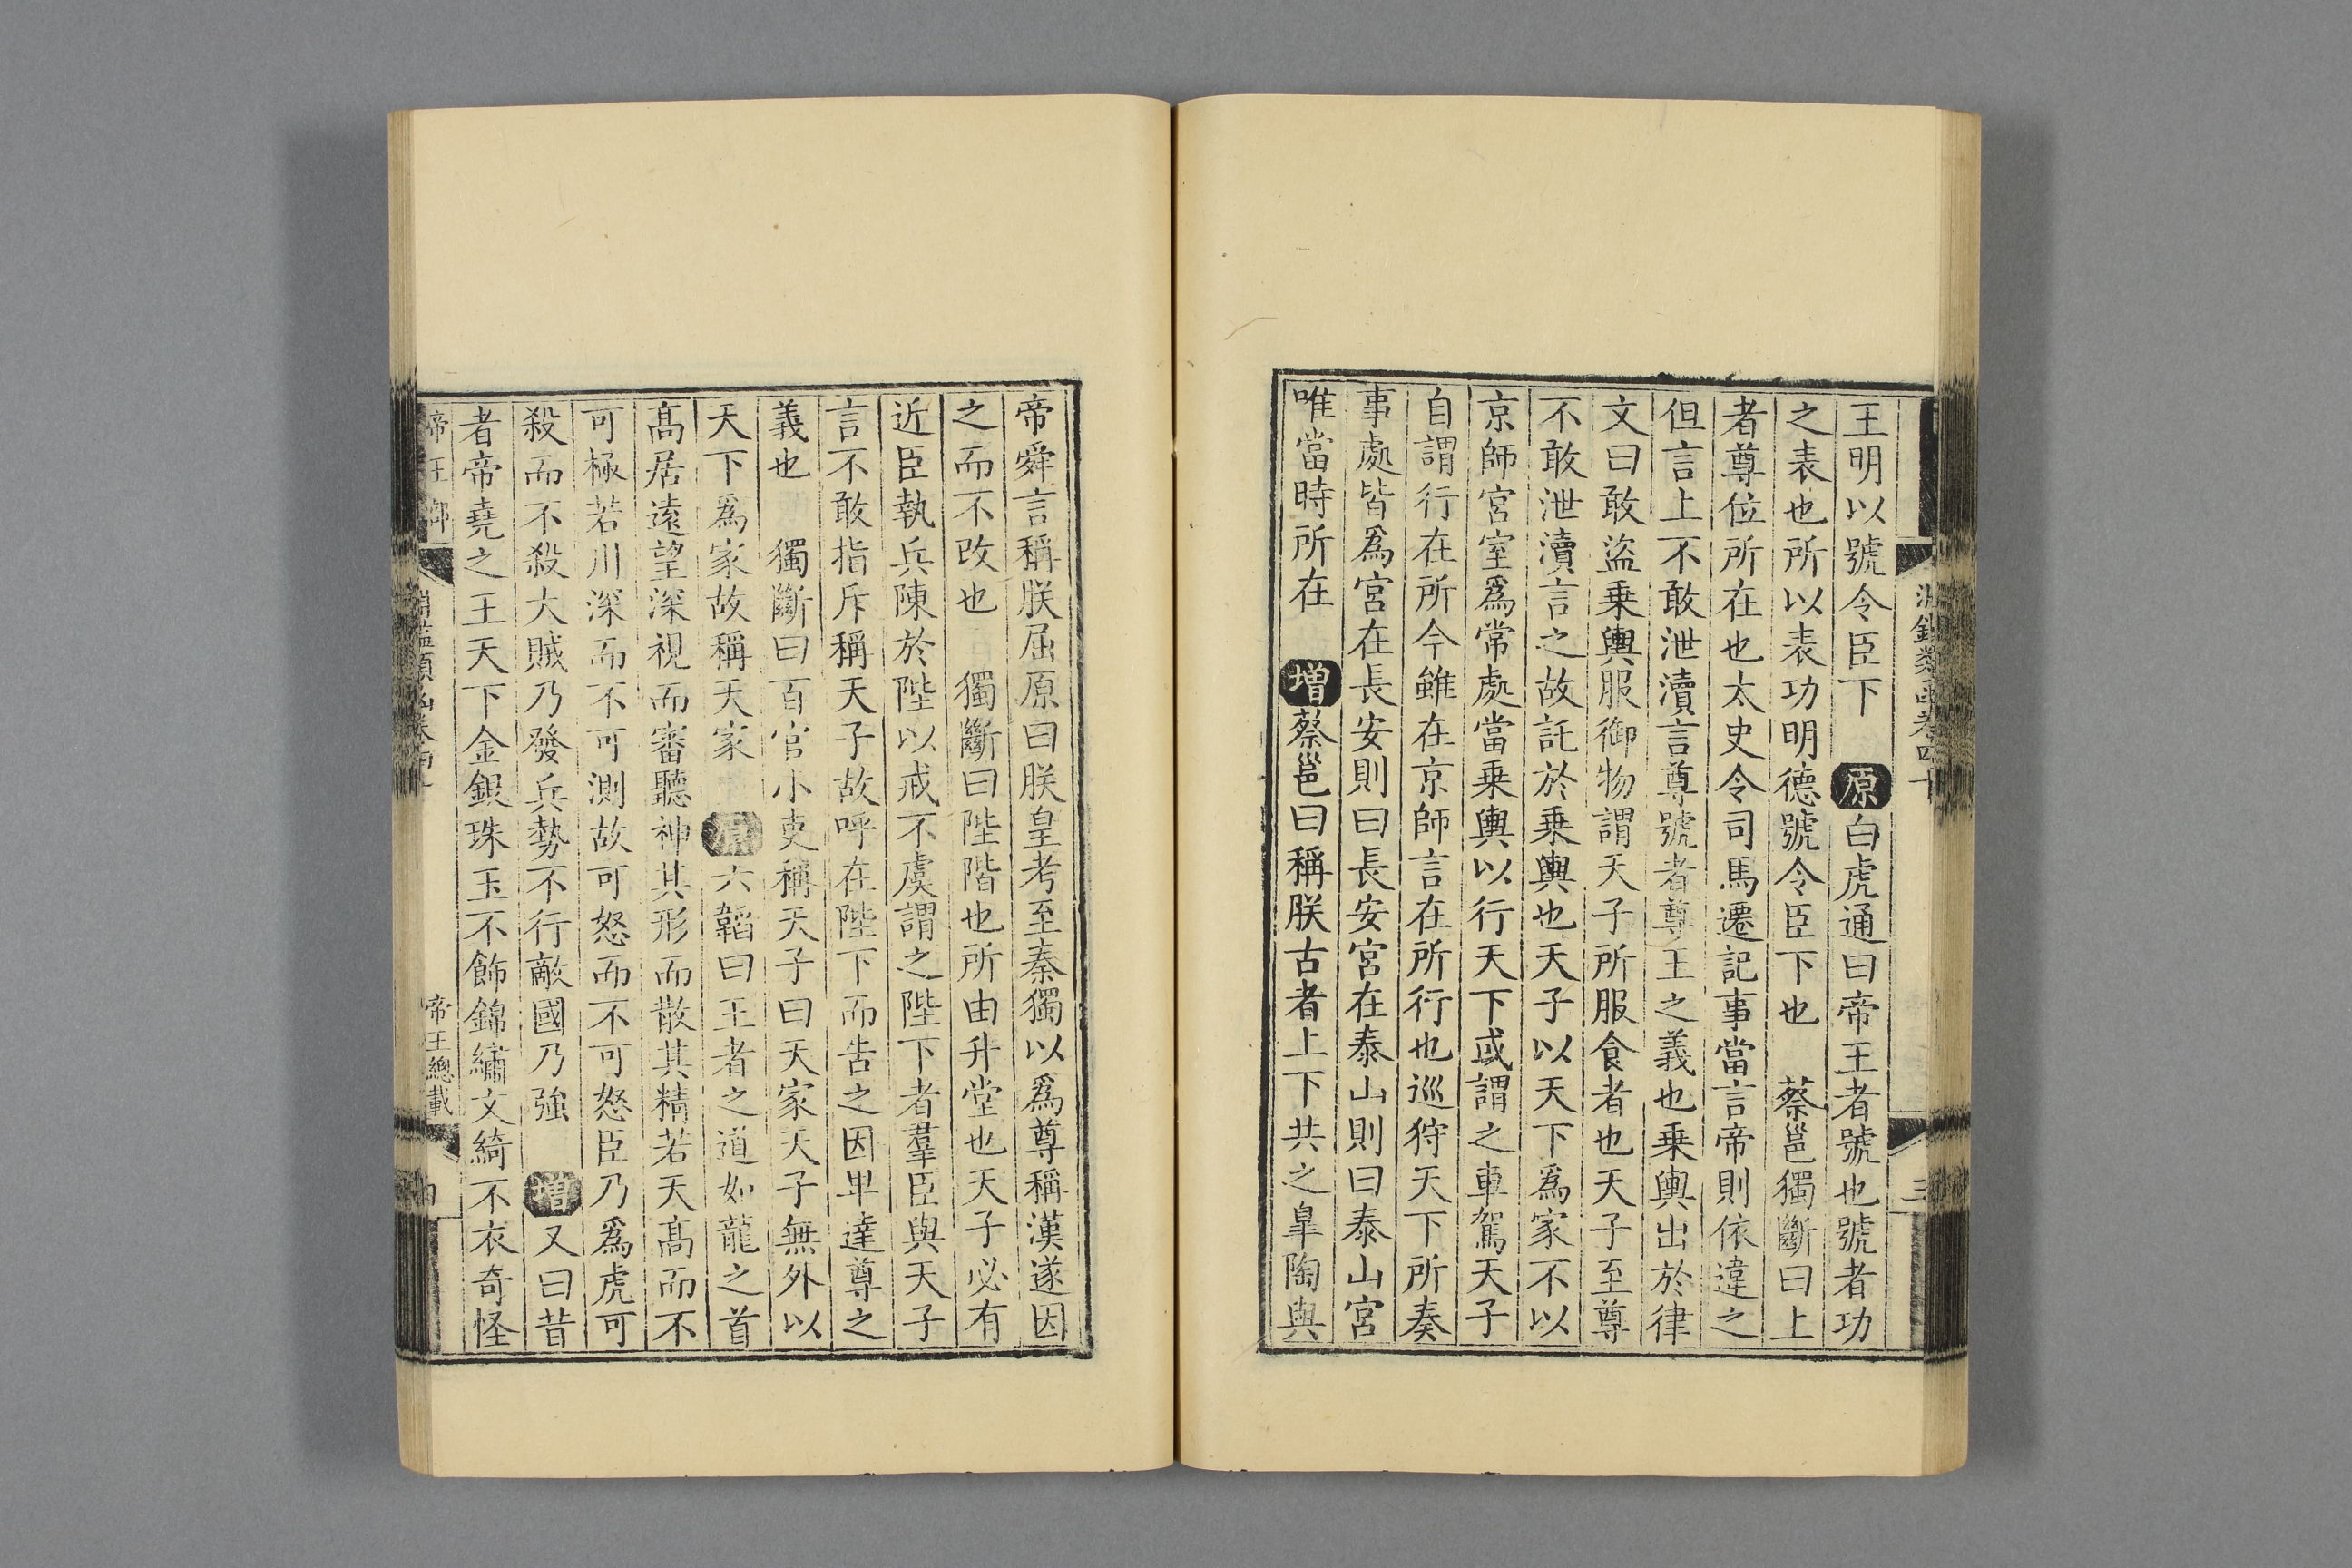 王明以號令臣下　原白虎通曰帝王者號也號者功
之表也所以表功明德號令臣下也　蔡邕獨斷曰上
者尊位所在也太史令司馬遷記事當言帝則依違之
但言上不敢泄瀆言尊號者尊王之義也乗輿出於律
文曰敢盜乗輿服御物謂天子所服食者也天子至尊
不敢泄瀆言之故託於乗輿也天子以天下爲家不以
京師宮室爲常處當乗輿以行天下或謂之車駕天子
自謂行在所今雖在京師言在所行也巡狩天下所奏
事處皆爲宮在長安則曰長安宮在泰山則曰泰山宮
唯當時所在　增蔡邕曰稱朕古者上下共之臯陶與
帝舜言稱朕屈原曰朕皇考至秦獨以爲尊稱漢遂因
之而不改也　獨斷曰陛階也所由升堂也天子必有
近臣執兵陳於陛以戒不虞謂之陛下者羣臣與天子
言不敢指斥稱天子故呼在陛下而告之因卑達尊之
義也　獨斷曰百官小吏稱天子曰天家天子無外以
天下爲家故稱天家　原六韜曰王者之道如龍之首
髙居遠望深視而審聽神其形而散其精若天髙而不
可極若川深而不可測故可怒而不可怒臣乃爲虎可
殺而不殺大賊乃發兵勢不行敵國乃強　增又曰昔
者帝堯之王天下金銀珠玉不飾錦繡文綺不衣奇怪
帝王總載